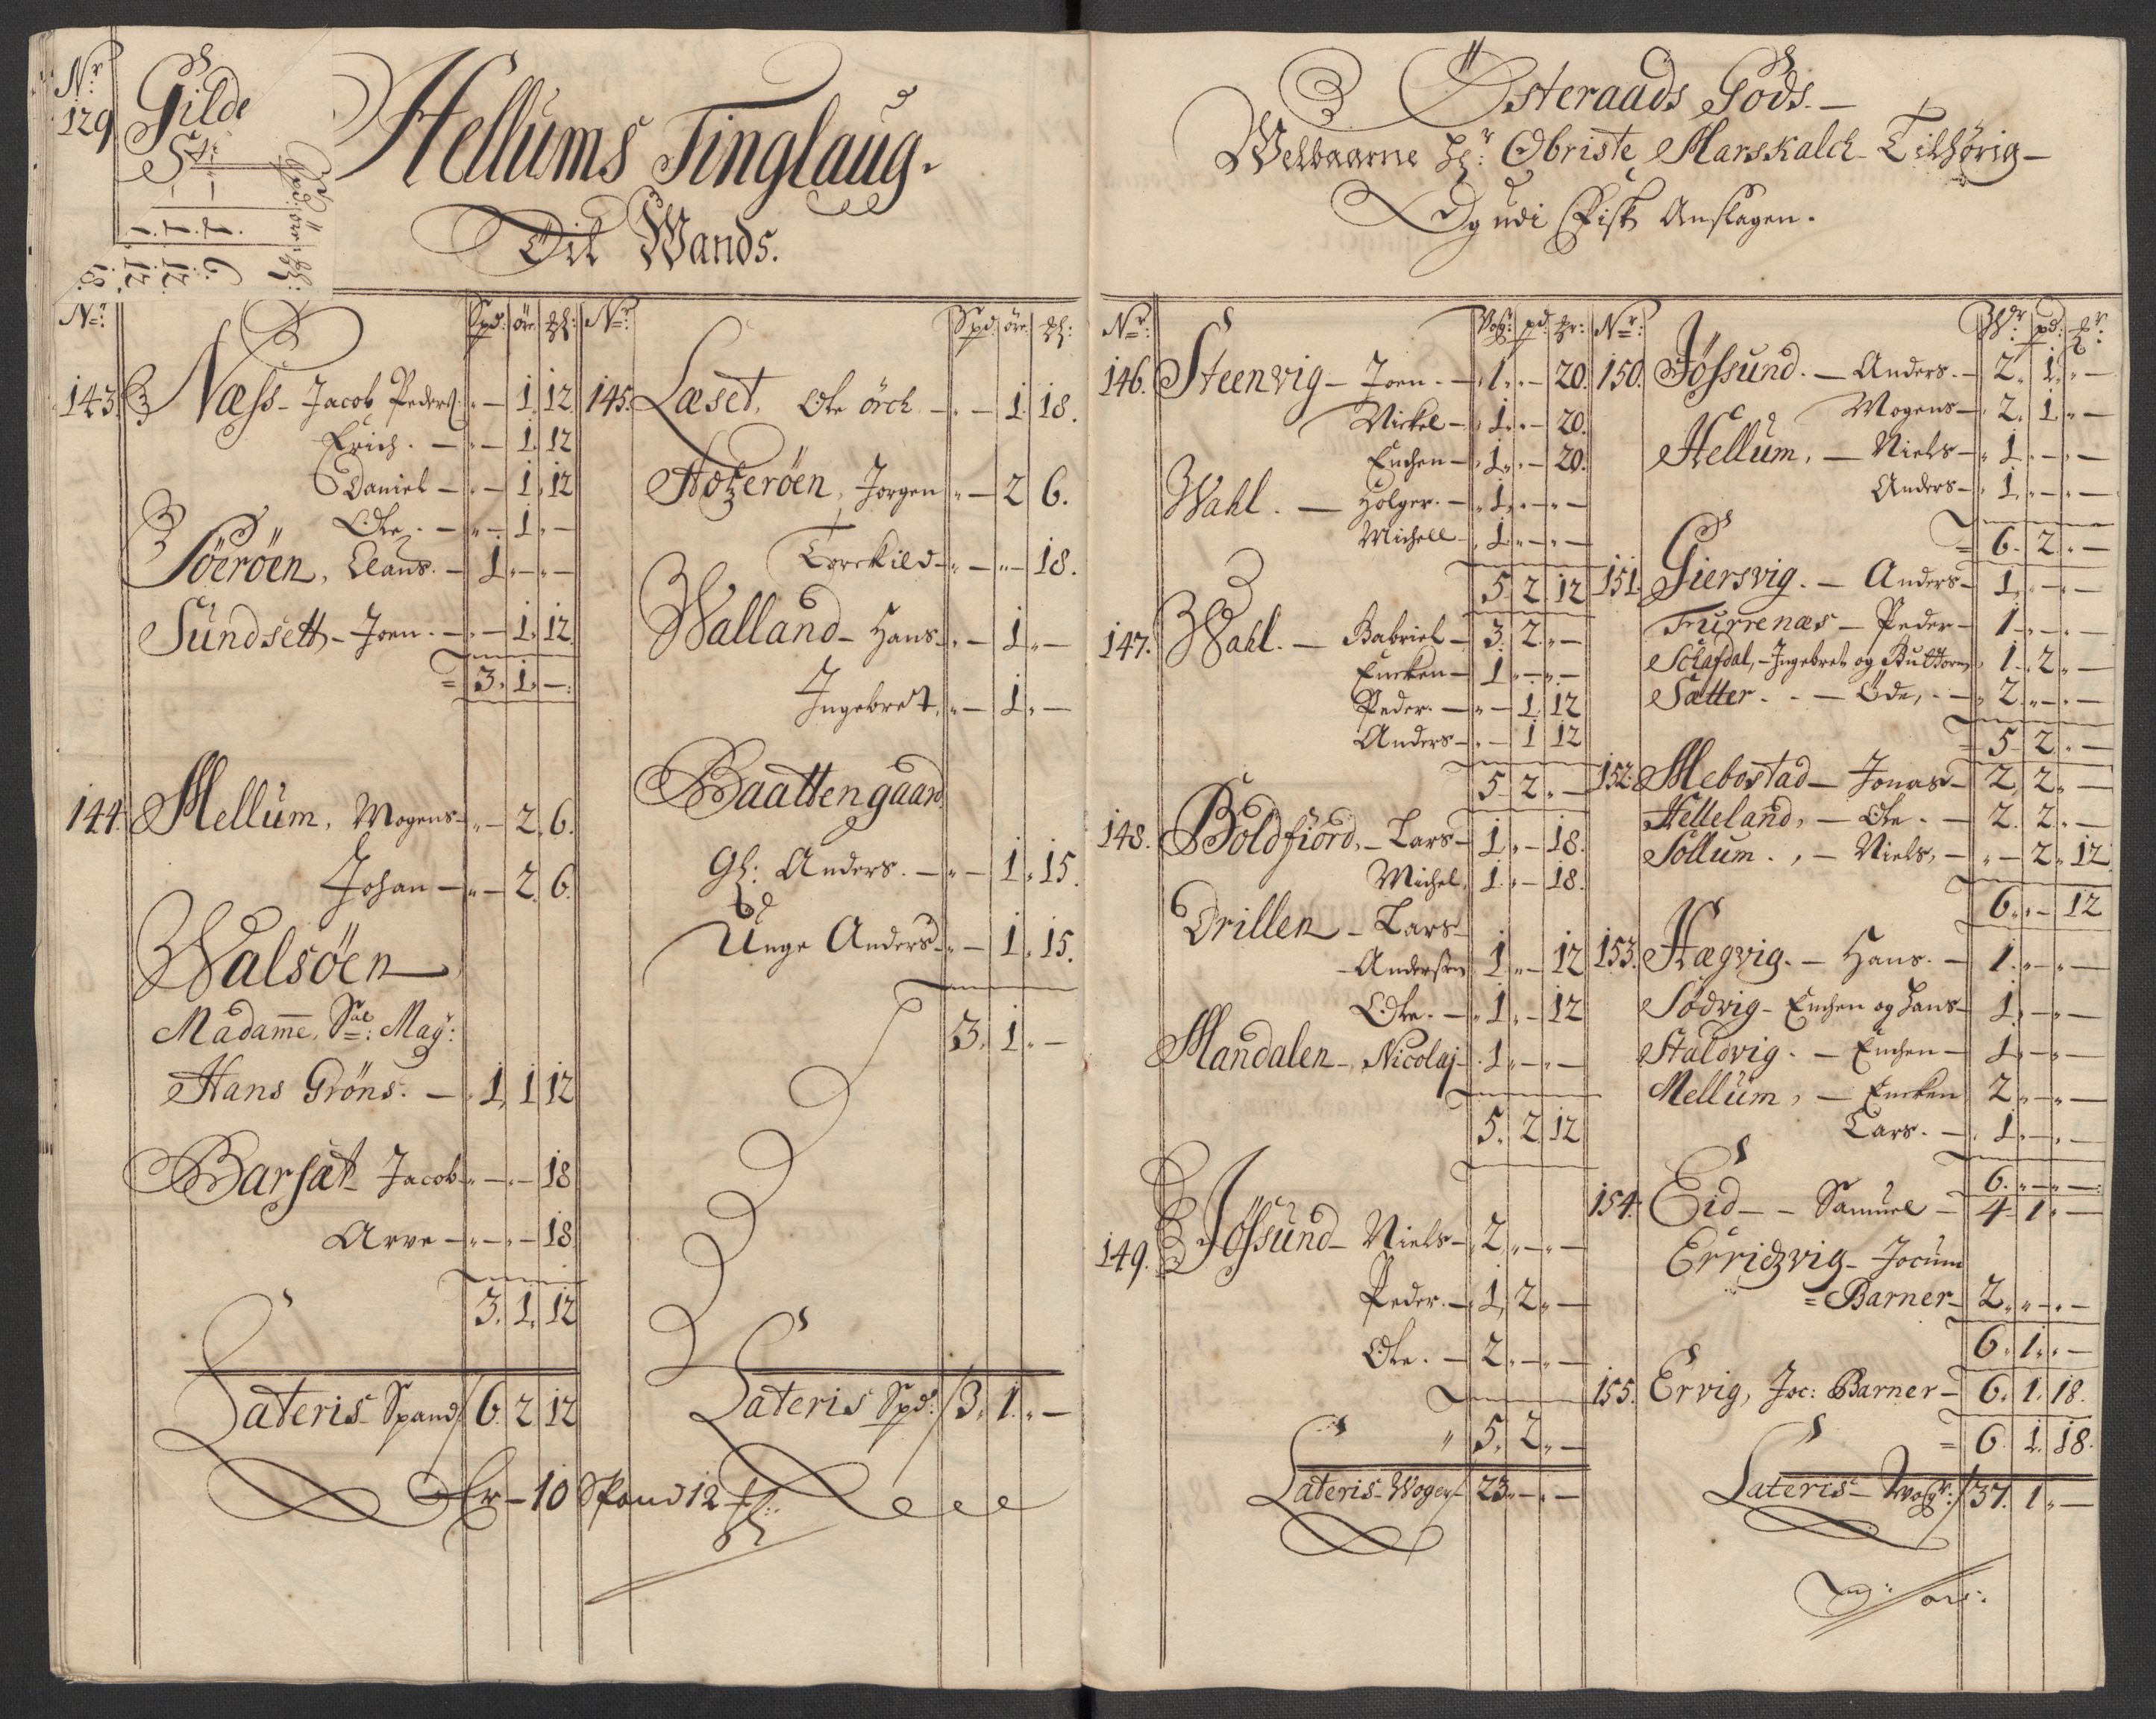 Nr 129 Gilde
Hellums Tinglaug.
Dit Wands.
Nr: Spd: ör: Nr: Spd: ör:
143. Næss - Jacob Peders: " - 1. 12
Erich. - " - 1. 12
Daniel - " - 1. 12
Ole. - " - 1. " -
Söeröen, Claus. - 1. " - " -
Sundsett - Joen. - " - 1. 12
= 3. 1. -
144. Mellum, Mogens - " - 2. 6.
Johan - " - 2. 6.
Walsöen
Madame, Sal: May:
Hans Gröns: - 1. 1. 12
Barsæt - Jacob - " - " - 18
Arve - " - " - 18
3. 1. 12
Lateris Spand / 6. 2. 12
145. Læset, Ole örch - " - 1. 18.
Hotzeröen, Jorgen " - 2 6.
Torckild - " - " - 18.
Walland - Hans - " - 1. " -
Ingebret, " - 1. " -
Baattengaard
Gl: Anders. - " - 1. 15.
Unge Anders - " - 1. 15.
3. 1. " -
Lateris Spd: / 3. 1. " -
Er - 10 Spand 12
Österaads Gods. -
Welbaarne Hr: Obriste Marskalck Tilhörig -
Og udi Fisk Anslagen.
Nr: Wog: pd: Nr: Wgr pd:
146. Steenvig - Joen. - 1. " - 20.
Nickel - 1. " - 20.
Enchen - 1. " - 20.
Wahl. - Holger. - 1. " - " -
Michell - 1. " - " -
5. 2. 12
147. Wahl. - Gabriel - 3. 2. " -
Encken - 1. " - " -
Peder. - " - 1. 12
Anders - " - 1 12
5. 2. " -
148. Boldfiord, - Lars - 1. " - 18.
Michel, 1. " - 18.
Drillen - Lars
- Andersen 1. " - 12
Ole. - 1. " - 12
Mandalen - Nicolaj - 1. " - " -
5. 2. 12
149. Jössund - Niels - 2. " - " -
Peder. - 1. 2. " -
Ole. - 2. " - " -
" 5. 2. " -
Lateris - Woger / 23. " - " -
150. Jössund. - Anders. - 2. 1. " -
Mogens - 2. 1. " -
Hellum, - Niels - 1. " - " -
Anders - 1. " - " -
= 6. 2. " -
151. Giersvig. - Anders - 1. " - " -
Furrenæs - Peder - 1. " - " -
Sclafdal, - Ingebret og Guttorm, 1. 2. " -
Sætter. - Öde, - 2. " - " -
= 5. 2. " -
152. Mebostad - Jonas - 2. 2. " -
Helleland, - Ole. - 2. 2. " -
Sollum. , - Niels, - " - 2. 12
6. " - 12
153. Hægvig. - Hans. - 1. " - " -
Södvig - Enchen og Hans - 1. " - " -
Staldvig. - Enchen - 1. " - " -
Mellum, - Encken 2. " - " -
Lars. - 1. " - " -
6. " - " -
154. Eid - - Samuel - 4. 1. " -
Erridzvig - Jocum
= Barner - 2. " - " -
6. 1. " -
155. Ervig, Joc: Barner - 6. 1. 18.
= 6. 1. 18.
Lateris - Wogr: / 37. 1. " -